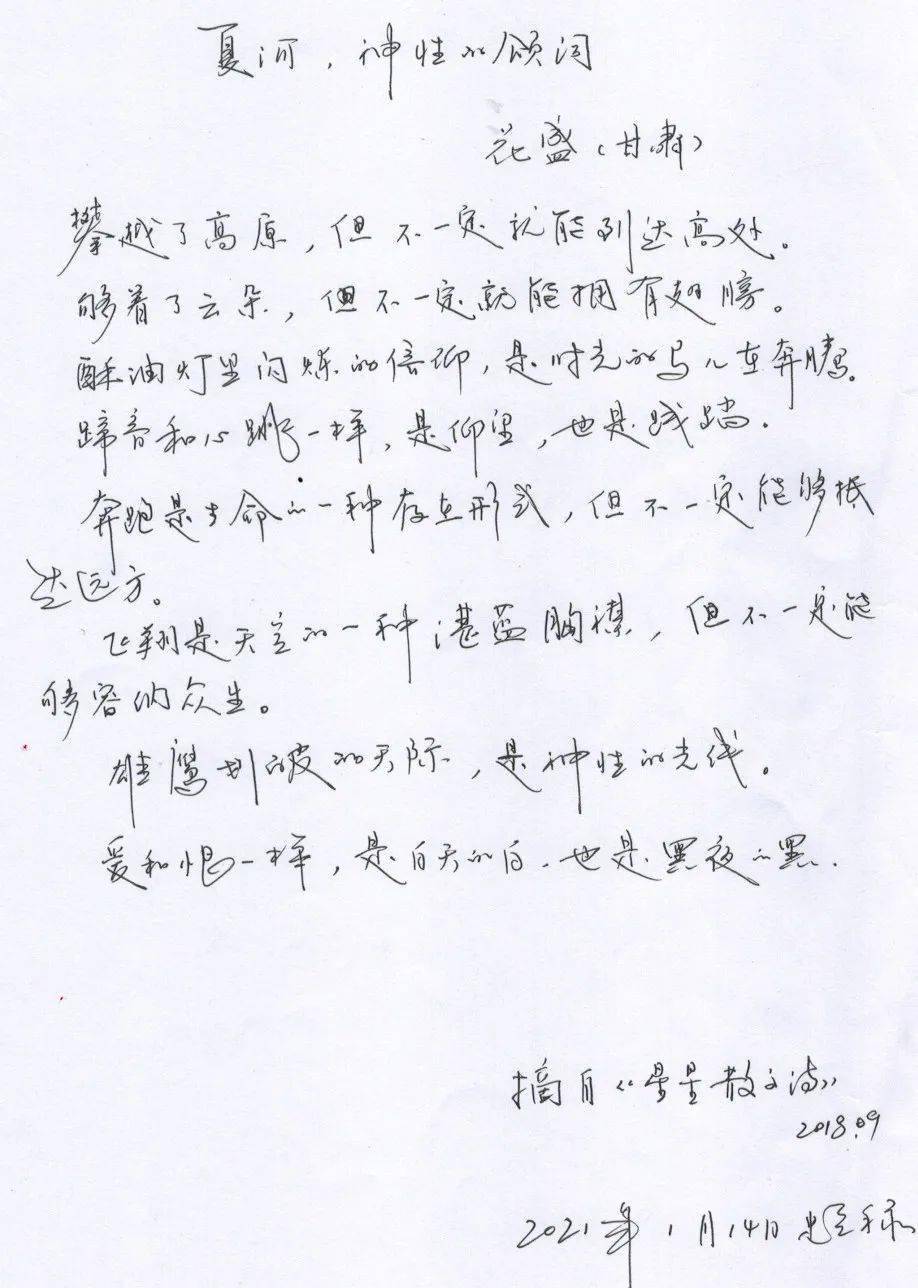 夏河，神性的颂词
花盛（甘肃）
攀越了高原，但不一定就能到达高处。
够着了云朵，但不一定就能拥有翅膀。
酥油灯里闪烁的信仰，是时光的马儿在奔腾。
蹄音和心跳一样，是仰望，也是践踏.
奔跑是生命的一种存在形式，但不一定能够抵
达远方。
飞翔是天空的一种湛蓝胸襟，但不一定能
够容纳众生。
雄鹰划破的天际，是神性的光线。
爱和恨一样，是白天的白.也是黑夜的黑.
摘自《星星散文诗》
2018.09
2021年1月14日